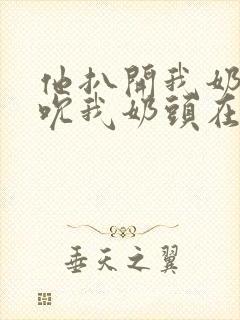 他扒開我奶
吮我奶頭在
垂天之翼